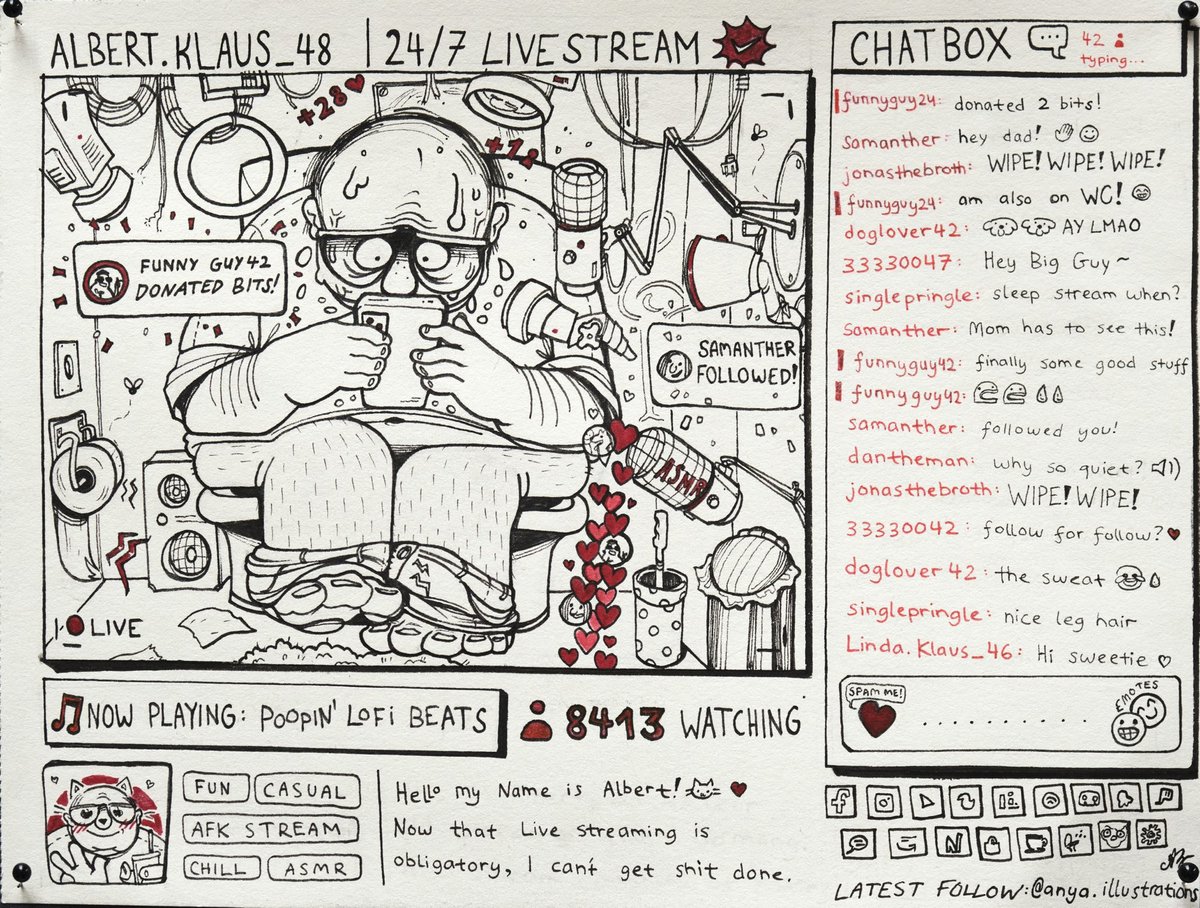 ALBERT.KLAUS_48 | 24/7 LIVESTREAM
+28
+12
FUNNY GUY42
DONATED BITS!
SAMANTHER
FOLLOWED!
ASMR
LIVE
NOW PLAYING: POOPIN' LOFI BEATS
8413 WATCHING
FUN
CASUAL
AFK STREAM
CHILL
ASMR
Hello my Name is Albert!
Now that Live streaming is
obligatory, I can't get shit done.
CHATBOX
42
typing...
funnyguy24: donated 2 bits!
Samanther: hey dad!
jonasthebroth: WIPE! WIPE! WIPE!
funnyguy24: am also on WC!
doglover42: AY LMAO
33330047: Hey Big Guy~
singlepringle: sleep stream when?
Samanther: Mom has to see this!
funnyguy42: finally some good stuff
funnyguy42:
samanther: followed you!
dantheman: why so quiet?
jonasthebroth: WIPE! WIPE!
33330042: follow for follow?
doglover42: the sweat
singlepringle: nice leg hair
Linda.Klaus_46: Hi sweetie
SPAM ME!
..........
EMOTES
LATEST FOLLOW:@anya.illustrations